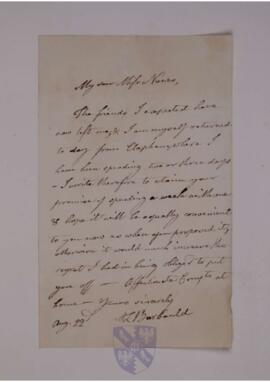 My dear Miss
The friends I expected have
now left me, & I am myself returned
to day from Clapham, where I
have been spending two or three days
I write therefore to claim your
promise of spending a week with me
& hope it will be equally convenient
to you now as when you proposed it,
otherwise it would much increase the
regret I had in being obliged to put
you off — Affectionate Compts at
home — yours sincerely
Aug. 22d A L Barbauld